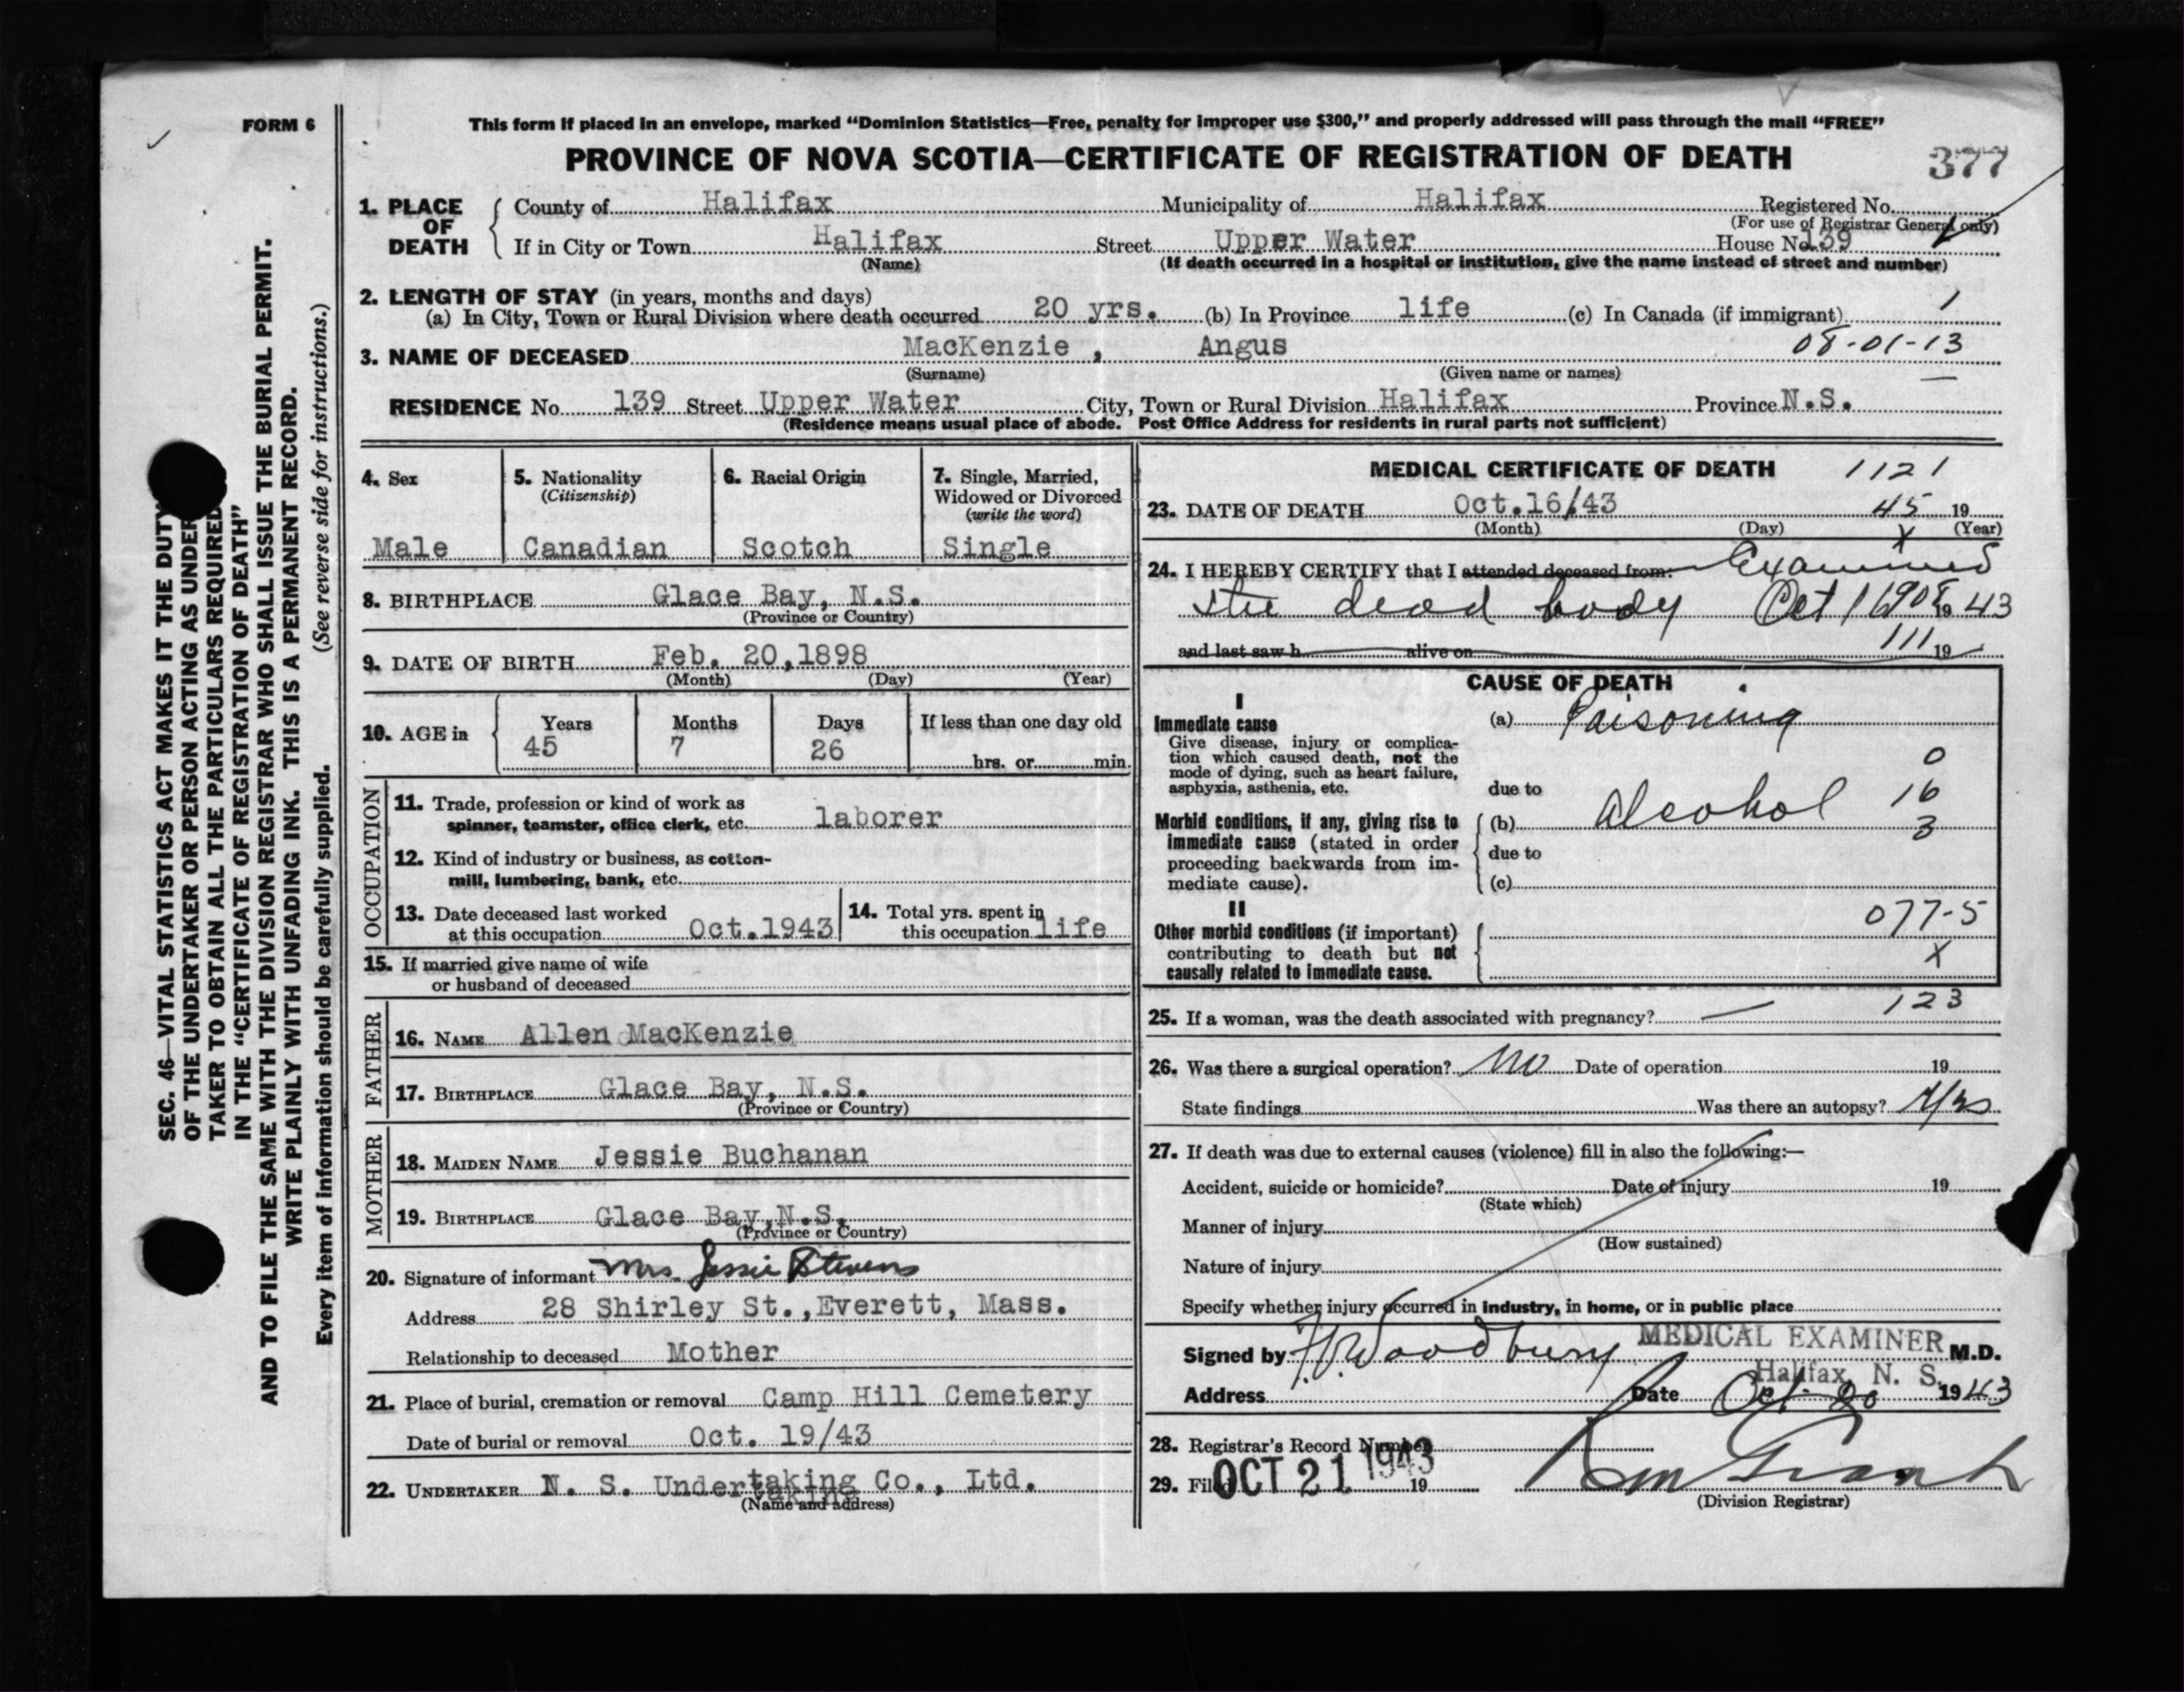 FORM 6
This form if placed in an envelope, marked “Dominion Statistics—Free, penalty for improper use $300,” and properly addressed will pass through the mail “FREE”
PROVINCE OF NOVA SCOTIA—CERTIFICATE OF REGISTRATION OF DEATH
377
1. PLACE OF DEATH
County of Halifax Municipality of Halifax Registered No.
(For use of Registrar General only)
If in City or Town Halifax Street Upper Water House No. 139
(Name) (If death occurred in a hospital or institution, give the name instead of street and number)
2. LENGTH OF STAY (in years, months and days)
(a) In City, Town or Rural Division where death occurred 20 yrs. (b) In Province life (c) In Canada (if immigrant) 1
3. NAME OF DECEASED MacKenzie , Angus 08-01-13
(Surname) (Given name or names)
RESIDENCE No. 139 Street Upper Water City, Town or Rural Division Halifax Province N.S.
(Residence means usual place of abode. Post Office Address for residents in rural parts not sufficient)
4. Sex
Male
5. Nationality
(Citizenship)
Canadian
6. Racial Origin
Scotch
7. Single, Married,
Widowed or Divorced
(write the word)
Single
8. BIRTHPLACE Glace Bay, N.S.
(Province or Country)
9. DATE OF BIRTH Feb. 20,1898
(Month) (Day) (Year)
10. AGE in
Years Months Days If less than one day old
45 7 26
hrs. or min.
OCCUPATION
11. Trade, profession or kind of work as
spinner, teamster, office clerk, etc. laborer
12. Kind of industry or business, as cotton-
mill, lumbering, bank, etc.
13. Date deceased last worked
at this occupation Oct.1943
14. Total yrs. spent in
this occupation life
15. If married give name of wife
or husband of deceased
FATHER
16. NAME Allen MacKenzie
17. BIRTHPLACE Glace Bay, N.S.
(Province or Country)
MOTHER
18. MAIDEN NAME Jessie Buchanan
19. BIRTHPLACE Glace Bay,N.S.
(Province or Country)
20. Signature of informant Mrs. Jessie Stevens
Address 28 Shirley St.,Everett, Mass.
Relationship to deceased Mother
21. Place of burial, cremation or removal Camp Hill Cemetery
Date of burial or removal Oct. 19/43
22. UNDERTAKER N. S. Undertaking Co., Ltd.
taking
(Name and address)
MEDICAL CERTIFICATE OF DEATH 1121
23. DATE OF DEATH Oct.16/43 45 19
(Month) (Day) (Year)
X
24. I HEREBY CERTIFY that I attended deceased from: Examined
the dead body Oct 16 908 19 43
and last saw h alive on 111 19
CAUSE OF DEATH
I
Immediate cause
Give disease, injury or complica-
tion which caused death, not the
mode of dying, such as heart failure,
asphyxia, asthenia, etc.
(a) Poisoning
0
due to
16
Morbid conditions, if any, giving rise to
immediate cause (stated in order
proceeding backwards from im-
mediate cause).
(b) Alcohol
3
due to
(c)
II
077-5
Other morbid conditions (if important)
contributing to death but not
causally related to immediate cause.
X
123
25. If a woman, was the death associated with pregnancy? —
26. Was there a surgical operation? No Date of operation 19
State findings Was there an autopsy? Yes
27. If death was due to external causes (violence) fill in also the following:—
Accident, suicide or homicide? Date of injury 19
(State which)
Manner of injury
(How sustained)
Nature of injury
Specify whether injury occurred in industry, in home, or in public place
Signed by Woodbury MEDICAL EXAMINER M.D.
Halifax, N. S.
Address Date Oct. 20 1943
28. Registrar's Record Number
29. Filed OCT 21 1943 19
Grant
(Division Registrar)
SEC. 46—VITAL STATISTICS ACT MAKES IT THE DUTY
OF THE UNDERTAKER OR PERSON ACTING AS UNDER
TAKER TO OBTAIN ALL THE PARTICULARS REQUIRED
IN THE “CERTIFICATE OF REGISTRATION OF DEATH”
AND TO FILE THE SAME WITH THE DIVISION REGISTRAR WHO SHALL ISSUE THE BURIAL PERMIT.
WRITE PLAINLY WITH UNFADING INK. THIS IS A PERMANENT RECORD.
Every item of information should be carefully supplied. (See reverse side for instructions.)